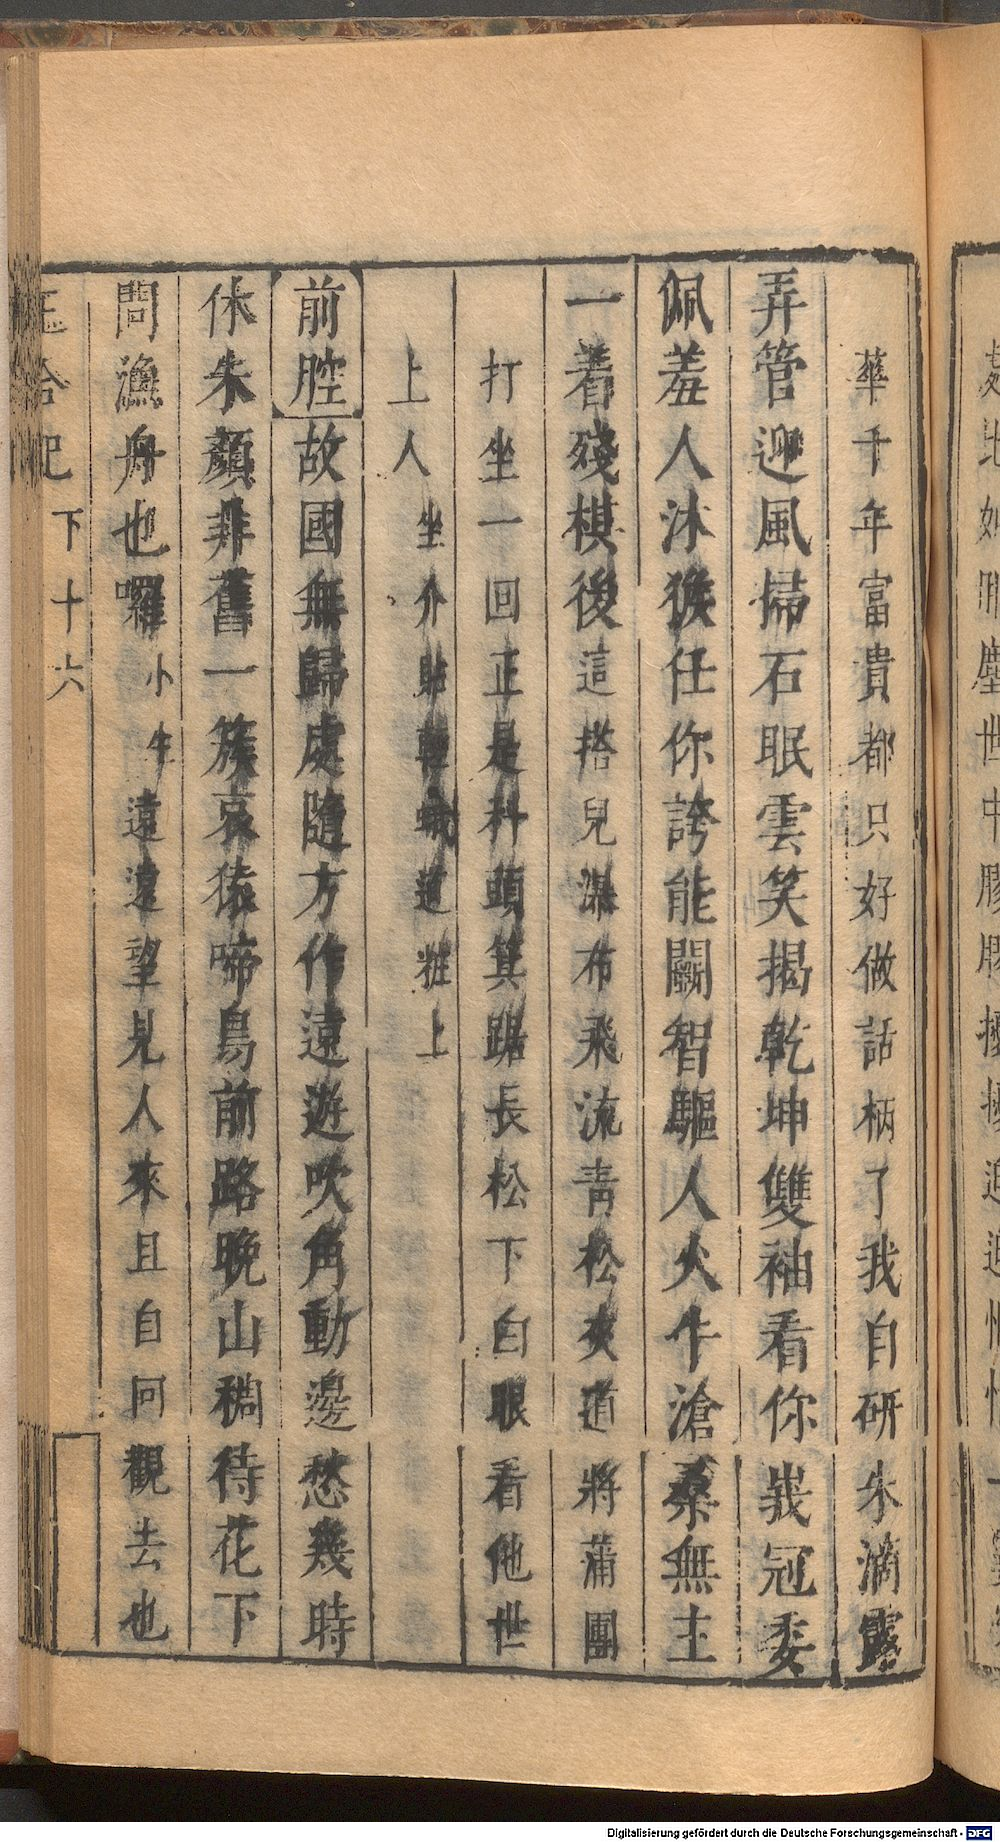 華千年富貴都只好做話柄了我自研朱滴露
弄管迎風掃石眠雲笑揭乾坤雙袖看你峩冠委
佩羞人沐猴任你誇能鬭智驅人火牛滄桑無主
一着殘棋後這搭兒瀑布飛流青松夾道將蒲團
打坐一回正是科頭箕踞長松下白眼看他世
上人坐介貼 道粧上
前腔故國無歸處隨方作遠遊吹角動邊愁幾時
休朱顏非舊一簇哀猿啼鳥前路晚山稠待花下
問漁舟也囉小生遠遠望見人來且自回觀去也
玉合記下十六
Digitalisierung gefördert durch die Deutsche Forschungsgemeinschaft - DFG